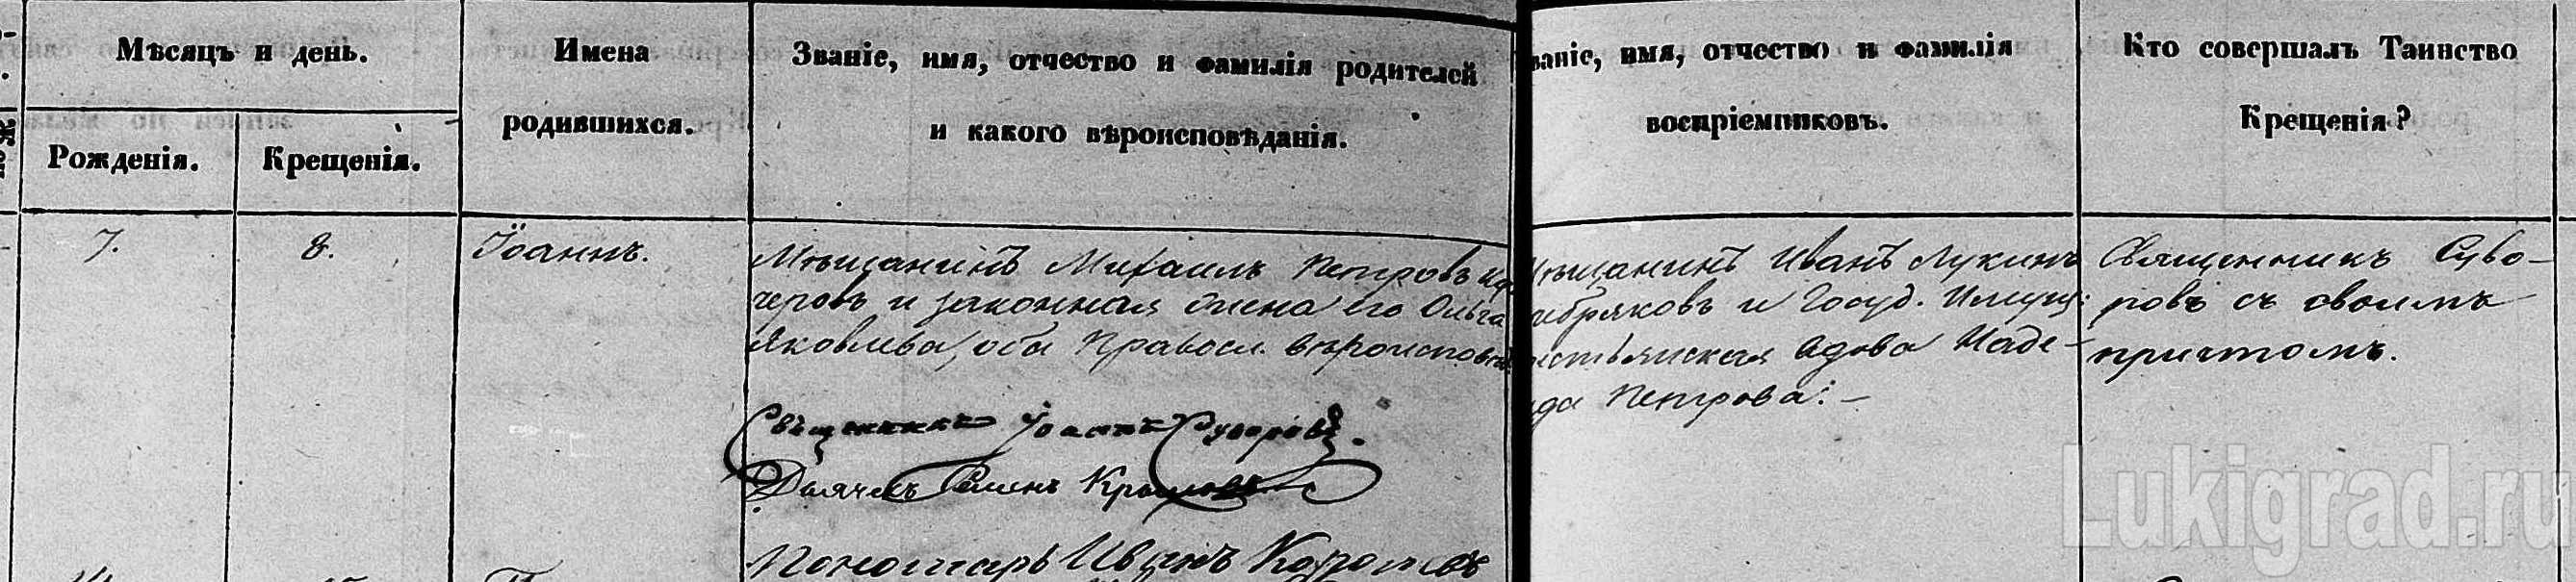 Мѣсяцъ и день.
Рожденія.
Крещенія.
Имена
родившихся.
Званіе, имя, отчество и фамилія родителей
и какого вѣроисповѣданія.
ваніе, имя, отчество и фамилія
воспріемниковъ.
Кто совершалъ Таинство
Крещенія?
7.
8.
Іоаннъ.
Мѣщанинъ Михаилъ Петровъ
черовъ и законная жена его Ольга
Яковлева, оба Правосл. вѣроисповѣд
Священникъ Іоаннъ Суворовъ.
Дьячекъ Семенъ
Пономарь Иванъ
ѣщанинъ Иванъ Лукинъ
ребряковъ и Госуд. Имущ:
естьянская вдова Наде-
жда Петрова.
Священникъ Суво-
ровъ съ своимъ
причтомъ.
Lukigrad.ru